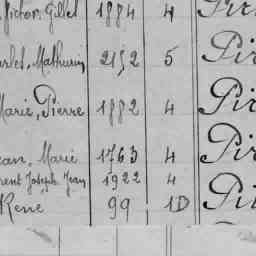 Gillet 1884 4 Pir
Mathurin 2152 5 Pir
Marie, Pierre 1882 4 Pir
Jean, Marie 1763 4 Pir
Joseph Jean 1922 4
René 99 1D Pir